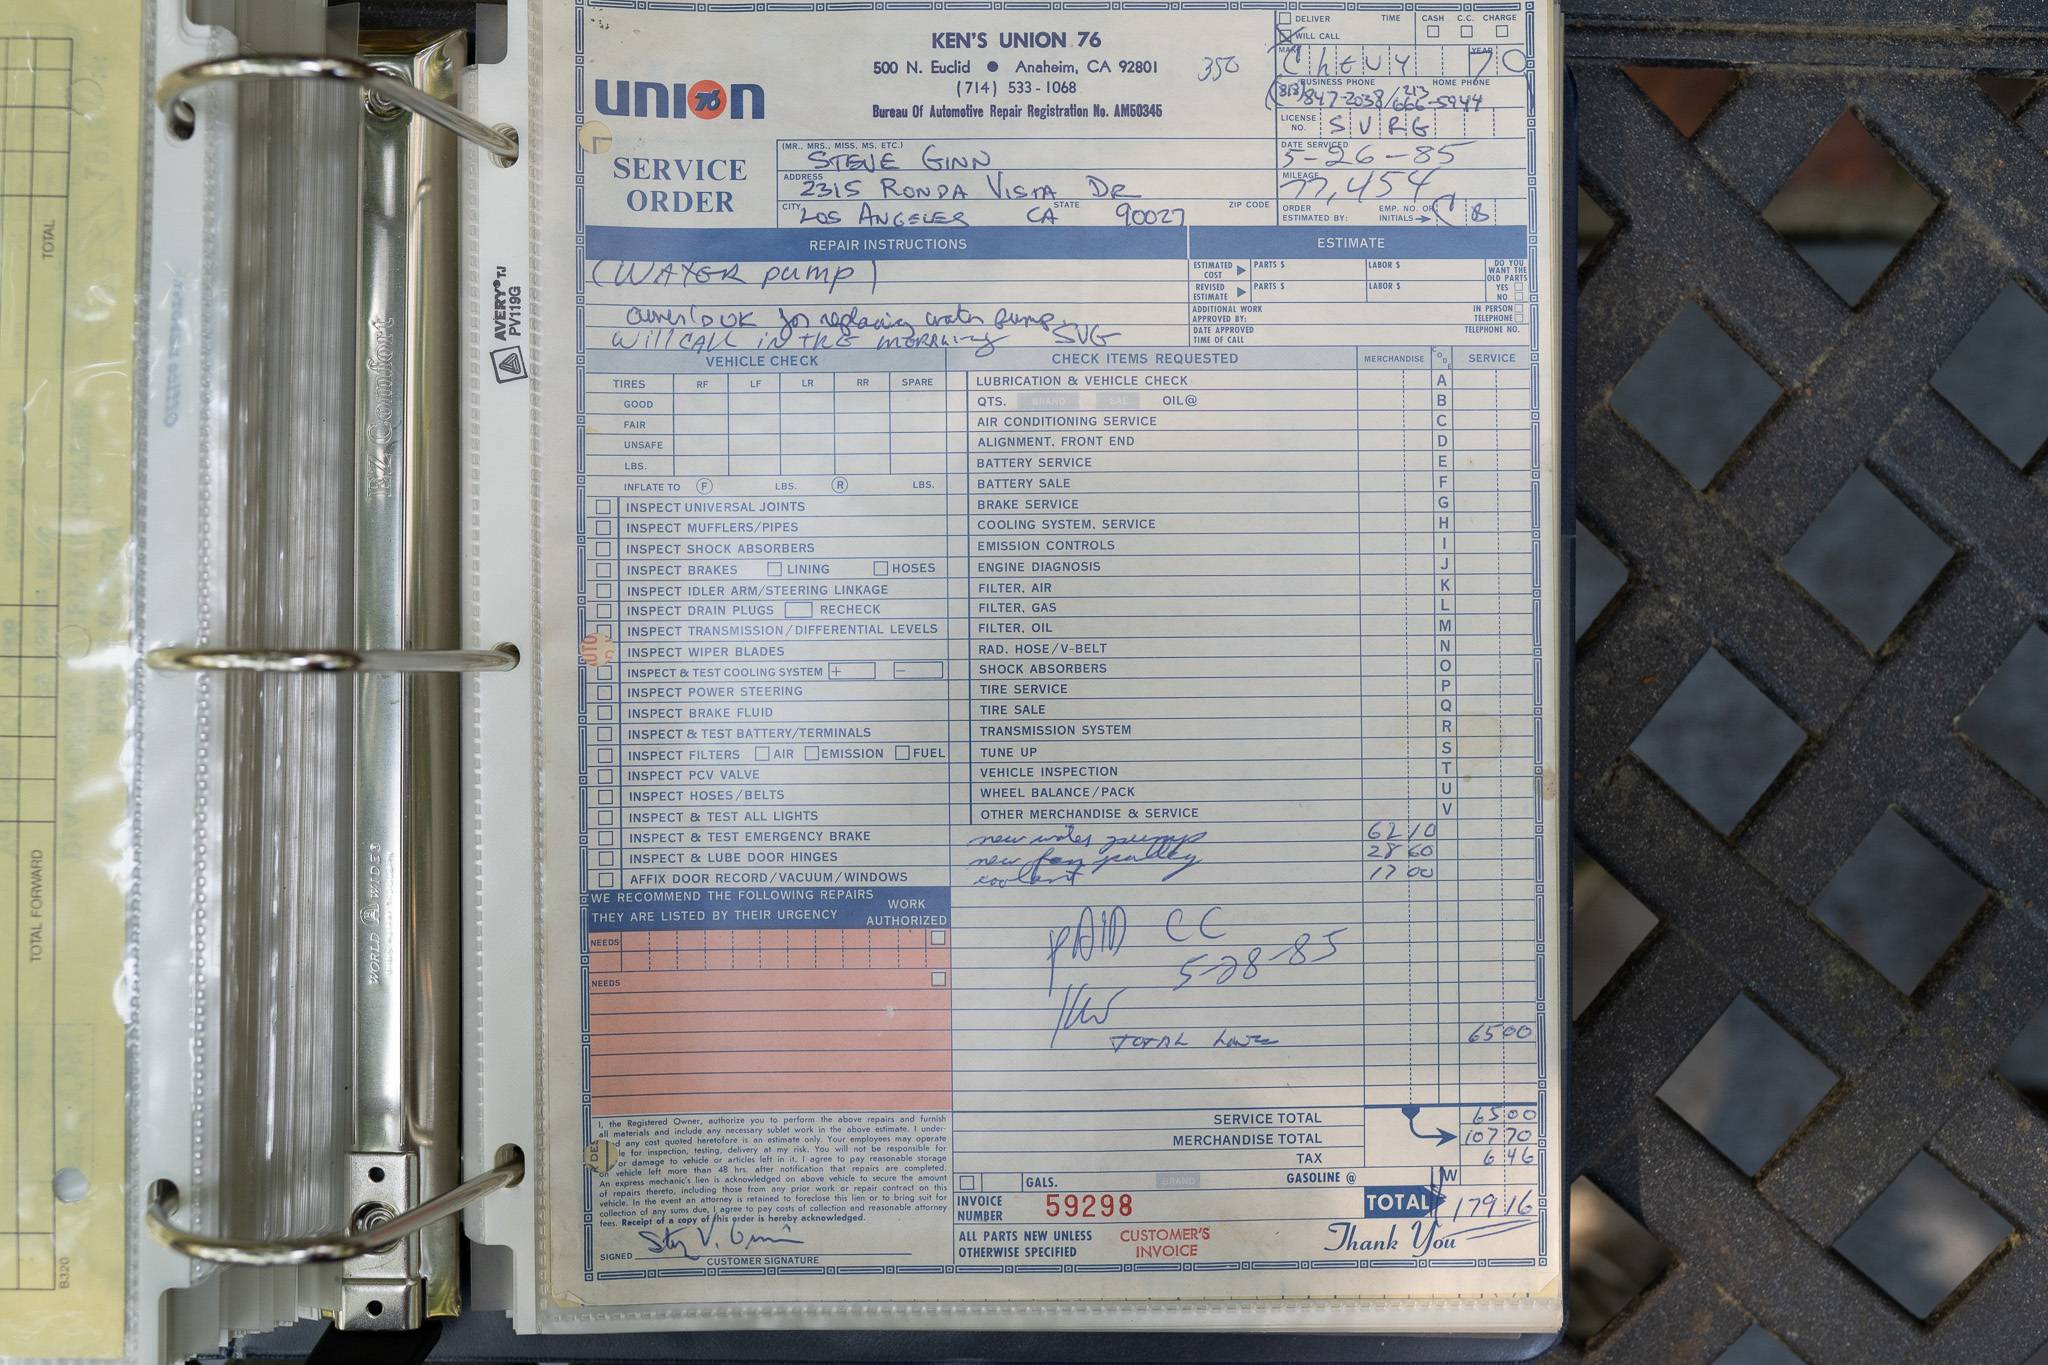 KEN'S UNION 76
500 N. Euclid ● Anaheim, CA 92801
(714) 533-1068
Bureau Of Automotive Repair Registration No. AM50345
350
UNION 76
SERVICE ORDER
DELIVER TIME CASH C.C. CHARGE
WILL CALL
MAKE CHEVY YEAR 70
BUSINESS PHONE HOME PHONE
(813) 847-2038 / 213 666-5944
LICENSE NO. SVRG
(MR., MRS., MISS, MS, ETC.) STEVE GINN
DATE SERVICED 5-26-85
ADDRESS 2315 RONDA VISTA DR
MILEAGE 77,454
CITY LOS ANGELES STATE CA 90027 ZIP CODE
ORDER ESTIMATED BY: EMP. NO. OR INITIALS→ C B
REPAIR INSTRUCTIONS
(WATER pump)
for replacing water pump.
Will CALL in THE SVG
ESTIMATE
ESTIMATED COST PARTS $ LABOR $
REVISED ESTIMATE PARTS $ LABOR $
DO YOU WANT THE OLD PARTS
YES
NO
ADDITIONAL WORK APPROVED BY: IN PERSON
TELEPHONE
DATE APPROVED TELEPHONE NO.
TIME OF CALL
VEHICLE CHECK
TIRES RF LF LR RR SPARE
GOOD
FAIR
UNSAFE
LBS.
INFLATE TO F LBS. R LBS.
INSPECT UNIVERSAL JOINTS
INSPECT MUFFLERS/PIPES
INSPECT SHOCK ABSORBERS
INSPECT BRAKES LINING HOSES
INSPECT IDLER ARM/STEERING LINKAGE
INSPECT DRAIN PLUGS RECHECK
INSPECT TRANSMISSION/DIFFERENTIAL LEVELS
INSPECT WIPER BLADES
INSPECT & TEST COOLING SYSTEM + −
INSPECT POWER STEERING
INSPECT BRAKE FLUID
INSPECT & TEST BATTERY/TERMINALS
INSPECT FILTERS AIR EMISSION FUEL
INSPECT PCV VALVE
INSPECT HOSES/BELTS
INSPECT & TEST ALL LIGHTS
INSPECT & TEST EMERGENCY BRAKE
INSPECT & LUBE DOOR HINGES
AFFIX DOOR RECORD/VACUUM/WINDOWS
WE RECOMMEND THE FOLLOWING REPAIRS
THEY ARE LISTED BY THEIR URGENCY
WORK AUTHORIZED
NEEDS
NEEDS
CHECK ITEMS REQUESTED MERCHANDISE CODE SERVICE
LUBRICATION & VEHICLE CHECK A
QTS. BRAND SAE OIL@ B
AIR CONDITIONING SERVICE C
ALIGNMENT, FRONT END D
BATTERY SERVICE E
BATTERY SALE F
BRAKE SERVICE G
COOLING SYSTEM, SERVICE H
EMISSION CONTROLS I
ENGINE DIAGNOSIS J
FILTER, AIR K
FILTER, GAS L
FILTER, OIL M
RAD. HOSE/V-BELT N
SHOCK ABSORBERS O
TIRE SERVICE P
TIRE SALE Q
TRANSMISSION SYSTEM R
TUNE UP S
VEHICLE INSPECTION T
WHEEL BALANCE/PACK U
OTHER MERCHANDISE & SERVICE V
new water pump 62 10
new fan pulley 28 60
coolant 17 00
PAID CC
5-28-85
TOTAL 65 00
SERVICE TOTAL 65 00
MERCHANDISE TOTAL 107 70
TAX 6 46
GALS. BRAND GASOLINE @ W
INVOICE NUMBER 59298
TOTAL 179 16
ALL PARTS NEW UNLESS OTHERWISE SPECIFIED
CUSTOMER'S INVOICE
Thank You
I, the Registered Owner, authorize you to perform the above repairs and furnish
all materials and include any necessary sublet work in the above estimate. I under-
d any cost quoted heretofore is an estimate only. Your employees may operate
le for inspection, testing, delivery at my risk. You will not be responsible for
or damage to vehicle or articles left in it. I agree to pay reasonable storage
on vehicle left more than 48 hrs. after notification that repairs are completed.
An express mechanic's lien is acknowledged on above vehicle to secure the amount
of repairs thereto, including those from any prior work or repair contract on this
vehicle. In the event an attorney is retained to foreclose this lien or to bring suit for
collection of any sums due, I agree to pay costs of collection and reasonable attorney
fees. Receipt of a copy of this order is hereby acknowledged.
SIGNED Stev V. Ginn
CUSTOMER SIGNATURE
AVERY TJ
PV119G
EZ Comfort
WORLD WIDE
TOTAL
TOTAL FORWARD
B320